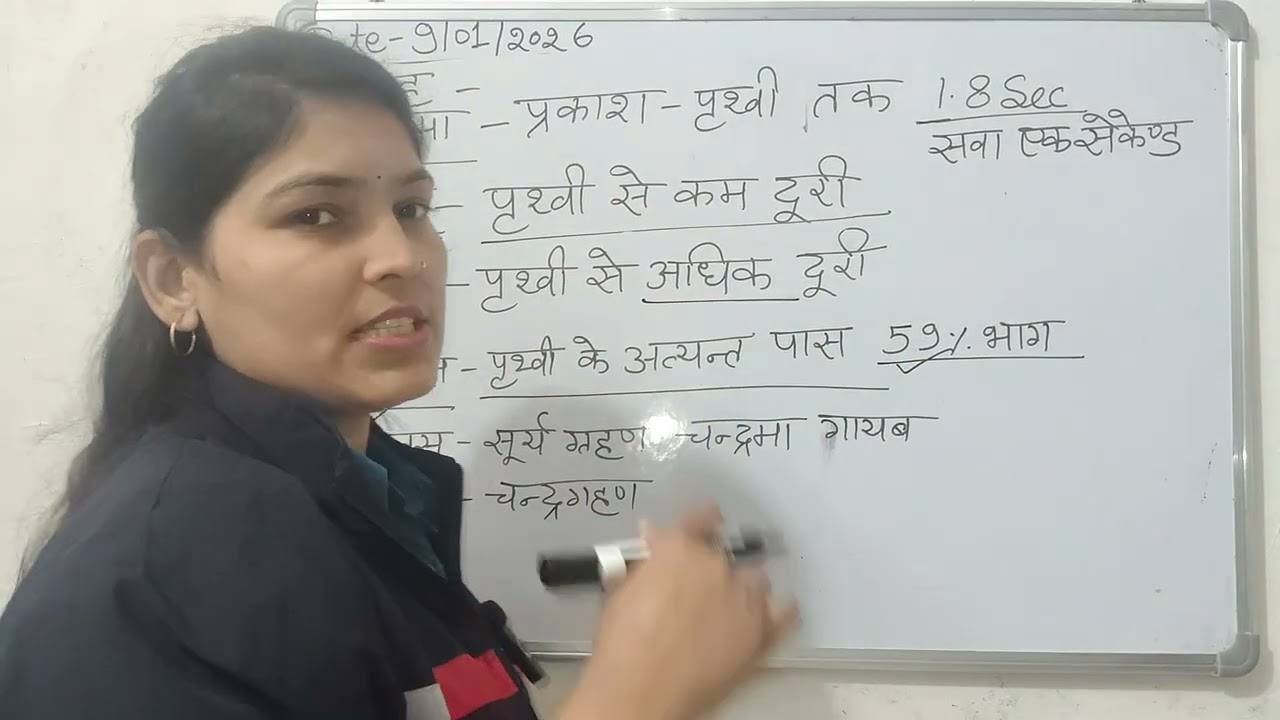 te-9/01/2026
प्रकाश-पृथ्वी तक 1.8 Sec
सवा एकसेकेण्ड
पृथ्वी से कम दूरी
पृथ्वी से अधिक दूरी
- पृथ्वी के अत्यन्त पास 59% भाग
- सूर्य ग्रहण चन्द्रमा गायब
- चन्द्रग्रहण